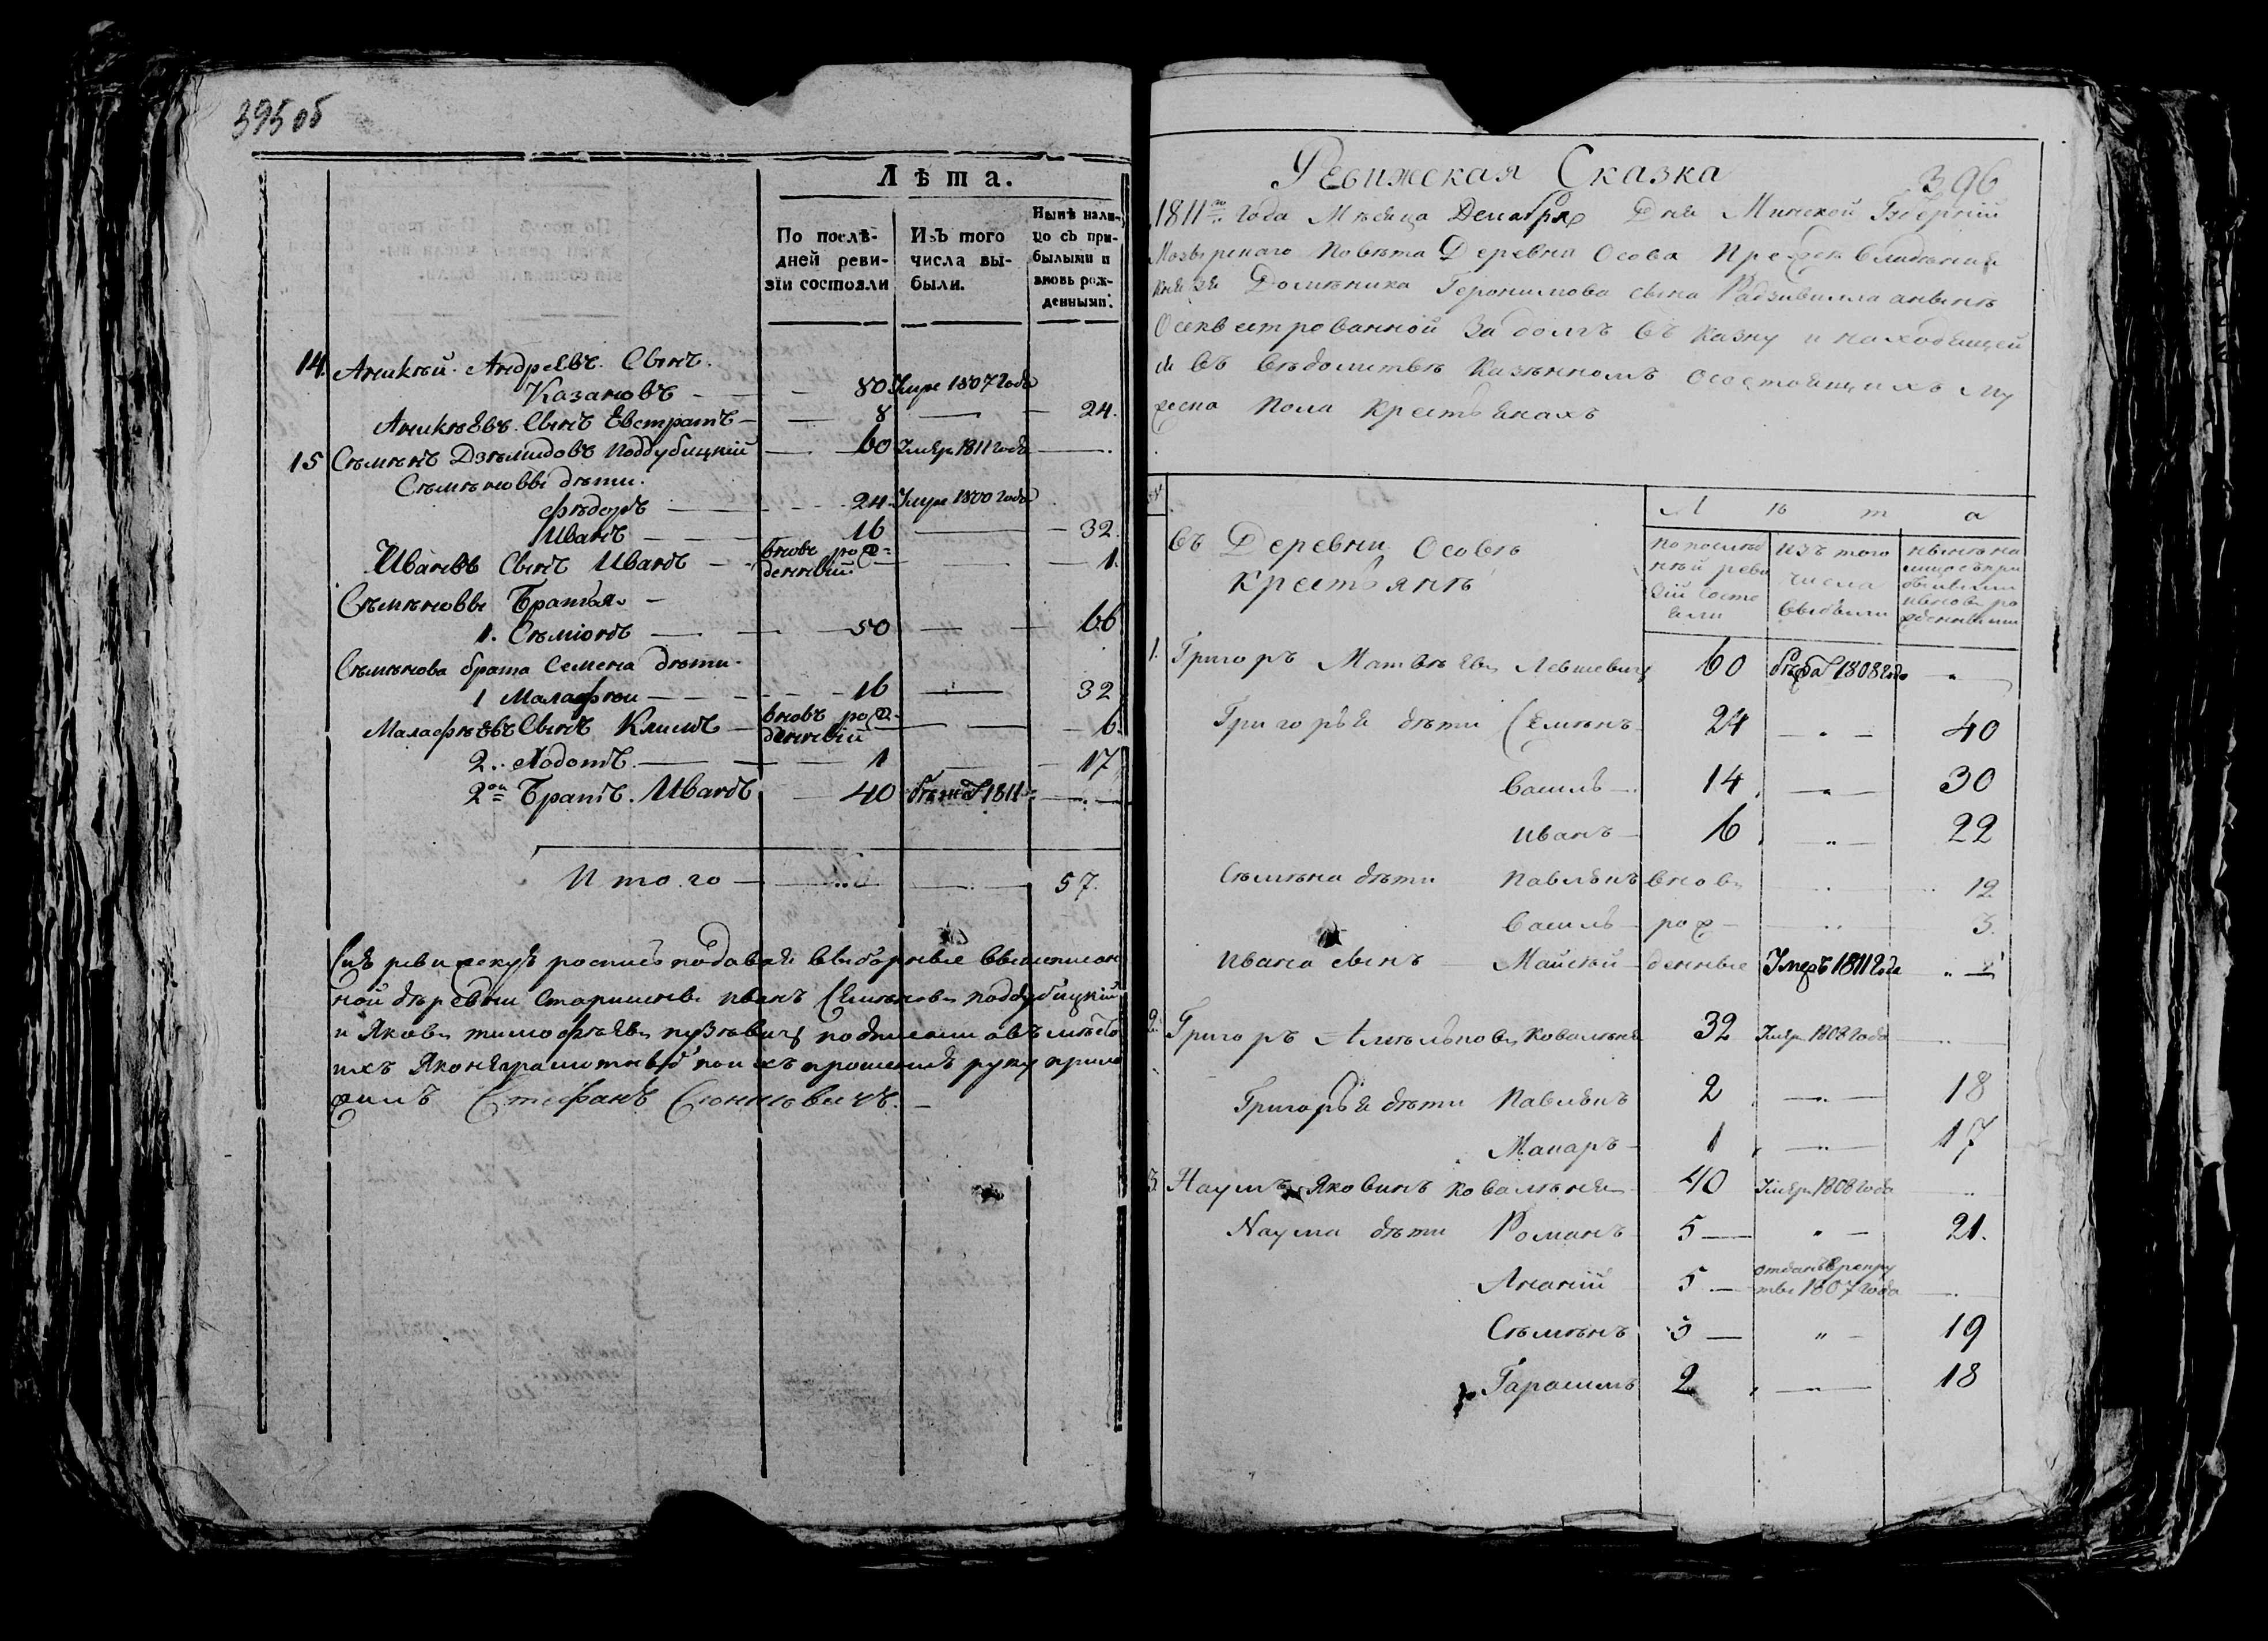 395 об
Лѣта.
По послѣ-
дней реви-
зіи состояли
Изъ того
числа вы-
были.
Нынѣ нали-
цо съ при-
былыми и
вновь рож-
денными.
14. Аникѣй Андреевъ Сынъ
Казановъ — 80 Умре 1807 Года
Аникѣевъ Сынъ Евстратъ — 8 — 24.
15 Сѣмѣнъ Дзѣмидовъ Поддубицкій — 60 Умеръ 1811 года —
Сѣмѣновы дѣти.
Ѳѣдоръ — 24 Умре 1800 Года
Иванъ — 16 — 32.
Ивановъ Сынъ Иванъ — вновь рож-
денный — 1.
Сѣмѣновы Братья —
1. Сѣміонъ — 50 — 66
Сѣмѣнова брата Семена дѣти
1 Малафѣи — 16 — 32
Малафѣевъ Сынъ Климъ — вновь рож-
денный — 6.
2. Ходотъ — 1 — 17
2ои Братъ Иванъ — 40 бѣжалъ 1811 —
Итого — 57.
Сію ревижскую роспись подавали выборные вышеписан
ной дѣревни Старишны Иванъ Семѣновъ поддубицкій
и Яковъ тимофѣевъ пузѣвичъ подписали авъ мѣсто
ихъ яко неграмотныхъ поихъ прошенію руку прило
жилъ Стефанъ
396
Ревижская Сказка
1811го Года Мѣсяца Декабря Дня Минской Губерній
Мозырскаго Повѣта Деревни Осова Прежде владѣнія
Князя Домѣника Геронимова сына Радзивилла анынѣ
Осеквестрованной За долгъ въ Казну и находящей
ся въ вѣдомствѣ Казѣнномъ осостоящихъ му
жеска пола крестьянахъ
Лѣта
Въ Деревни Осовѣ
Крестьянъ
Попослѣд
нѣй реви
зіи состо
яли
изъ того
числа
выбыли
нынѣ на
лицо съ при
былыми
ивновь ро
жденными
1. Григоръ Матвѣевъ Левшевичъ 60 бѣжалъ 1808 Года
Григорья дѣти Семѣнъ 24 — 40
Василь — 14 — 30
Иванъ — 6 — 22
Сѣмѣна дѣти Павлюкъ вновь 12
Василь рож- 3.
Ивана сынъ Майсѣй денные Умеръ 1811 Года
2. Григоръ Амѣльяновъ Ковалѣня 32 Умеръ 1808 Года
Григорья дѣти Павлюкъ 2 — 18
Макаръ — 1 — 17
3. Наумъ Яковинъ Ковалѣня 40 Умеръ 1808 Года
Наума дѣти Романъ 5 — 21.
Ананій 5 — отданъ врекру
ты 1807 Года
Сѣмѣнъ 3 — 19
Гарасимъ 2 — 18